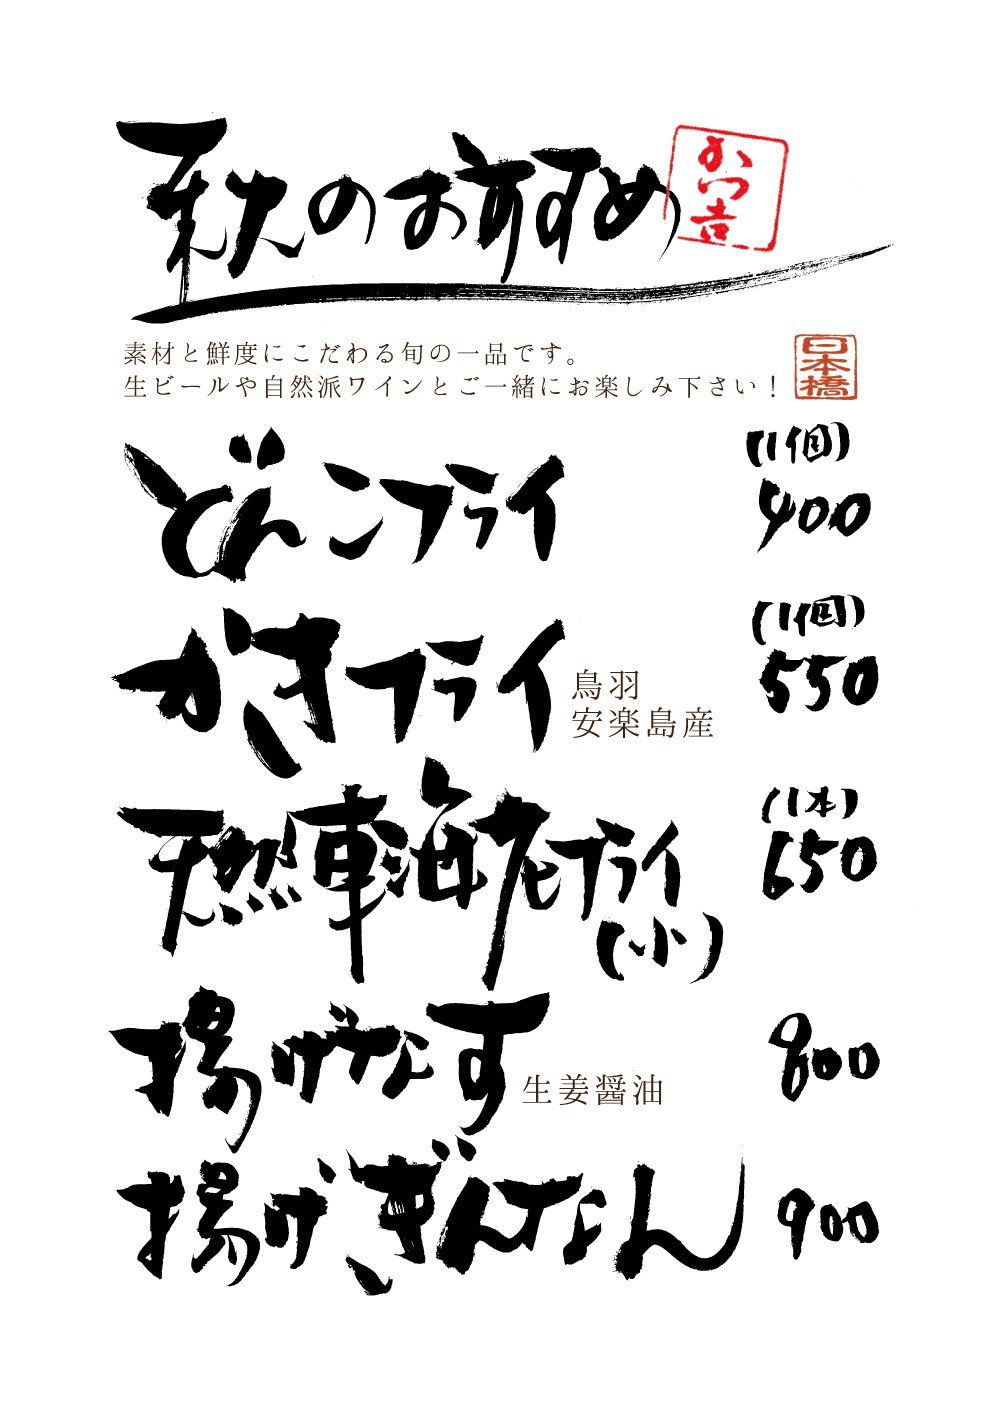 秋のおすすめ
かつ吉
素材と鮮度にこだわる旬の一品です。
生ビールや自然派ワインとご一緒にお楽しみ下さい！
日本橋
どんこフライ (1個) 400
かきフライ 鳥羽 安楽島産 (1個) 550
天然車海老フライ (小) (1本) 650
揚げなす 生姜醤油 800
揚げぎんなん 900